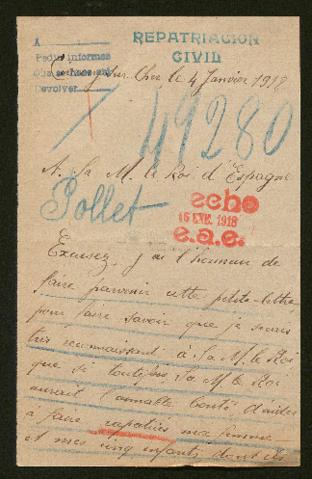 REPATRIACION
CIVIL
A
Pedir informes
Devolver
Cher le 4 Janvier 1918
49280
A Sa M. le Roi d'Espagne
Pollet
echo
16 ENE. 1918
e.a.e.
Excusez, j'ai l'honneur de
faire parvenir cette petite lettre
pour faire savoir que je serais
très reconnaissant à Sa M. le Roi
que si toutefois Sa M. le Roi
aurait l'aimable bonté d'aider
à faire rapatrier ma femme
et mes cinq enfants dont ils